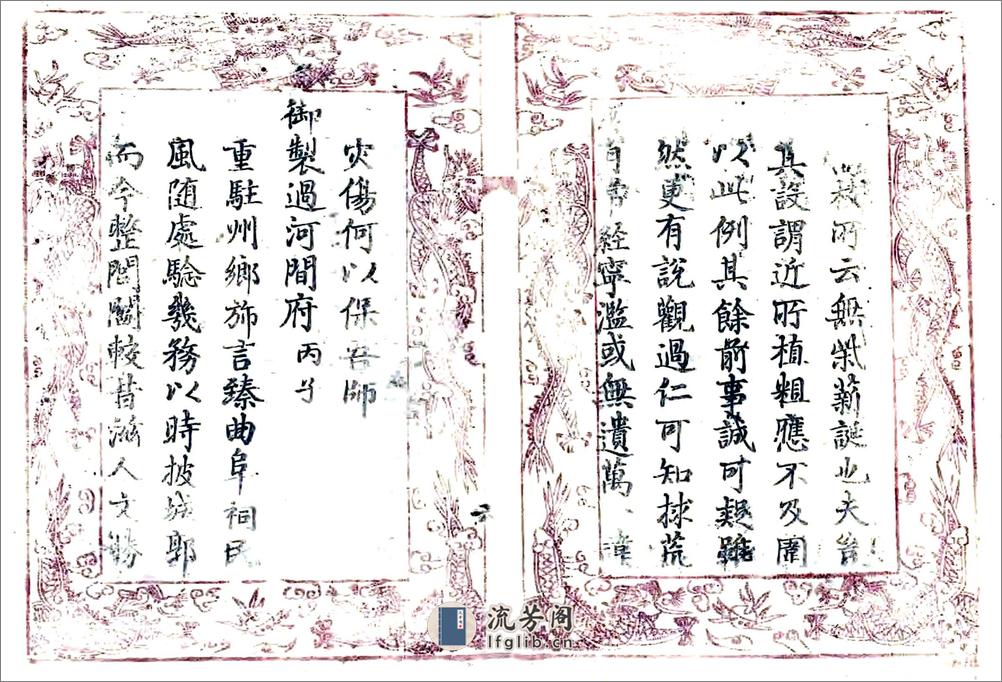 所云無柴薪誕也夫豈
其設謂近所植粗應不及閣
以此例其餘前事誠可疑雖
然更有說觀過仁可知捄荒
經寧濫或無遺萬
灾傷何以保吾師
御製過河間府丙子
重駐州鄉斾言臻曲阜祠民
風随處騐幾務以時披城郭
而今整閭閻較昔滋人文
二
流芳阁
lfglib.cn